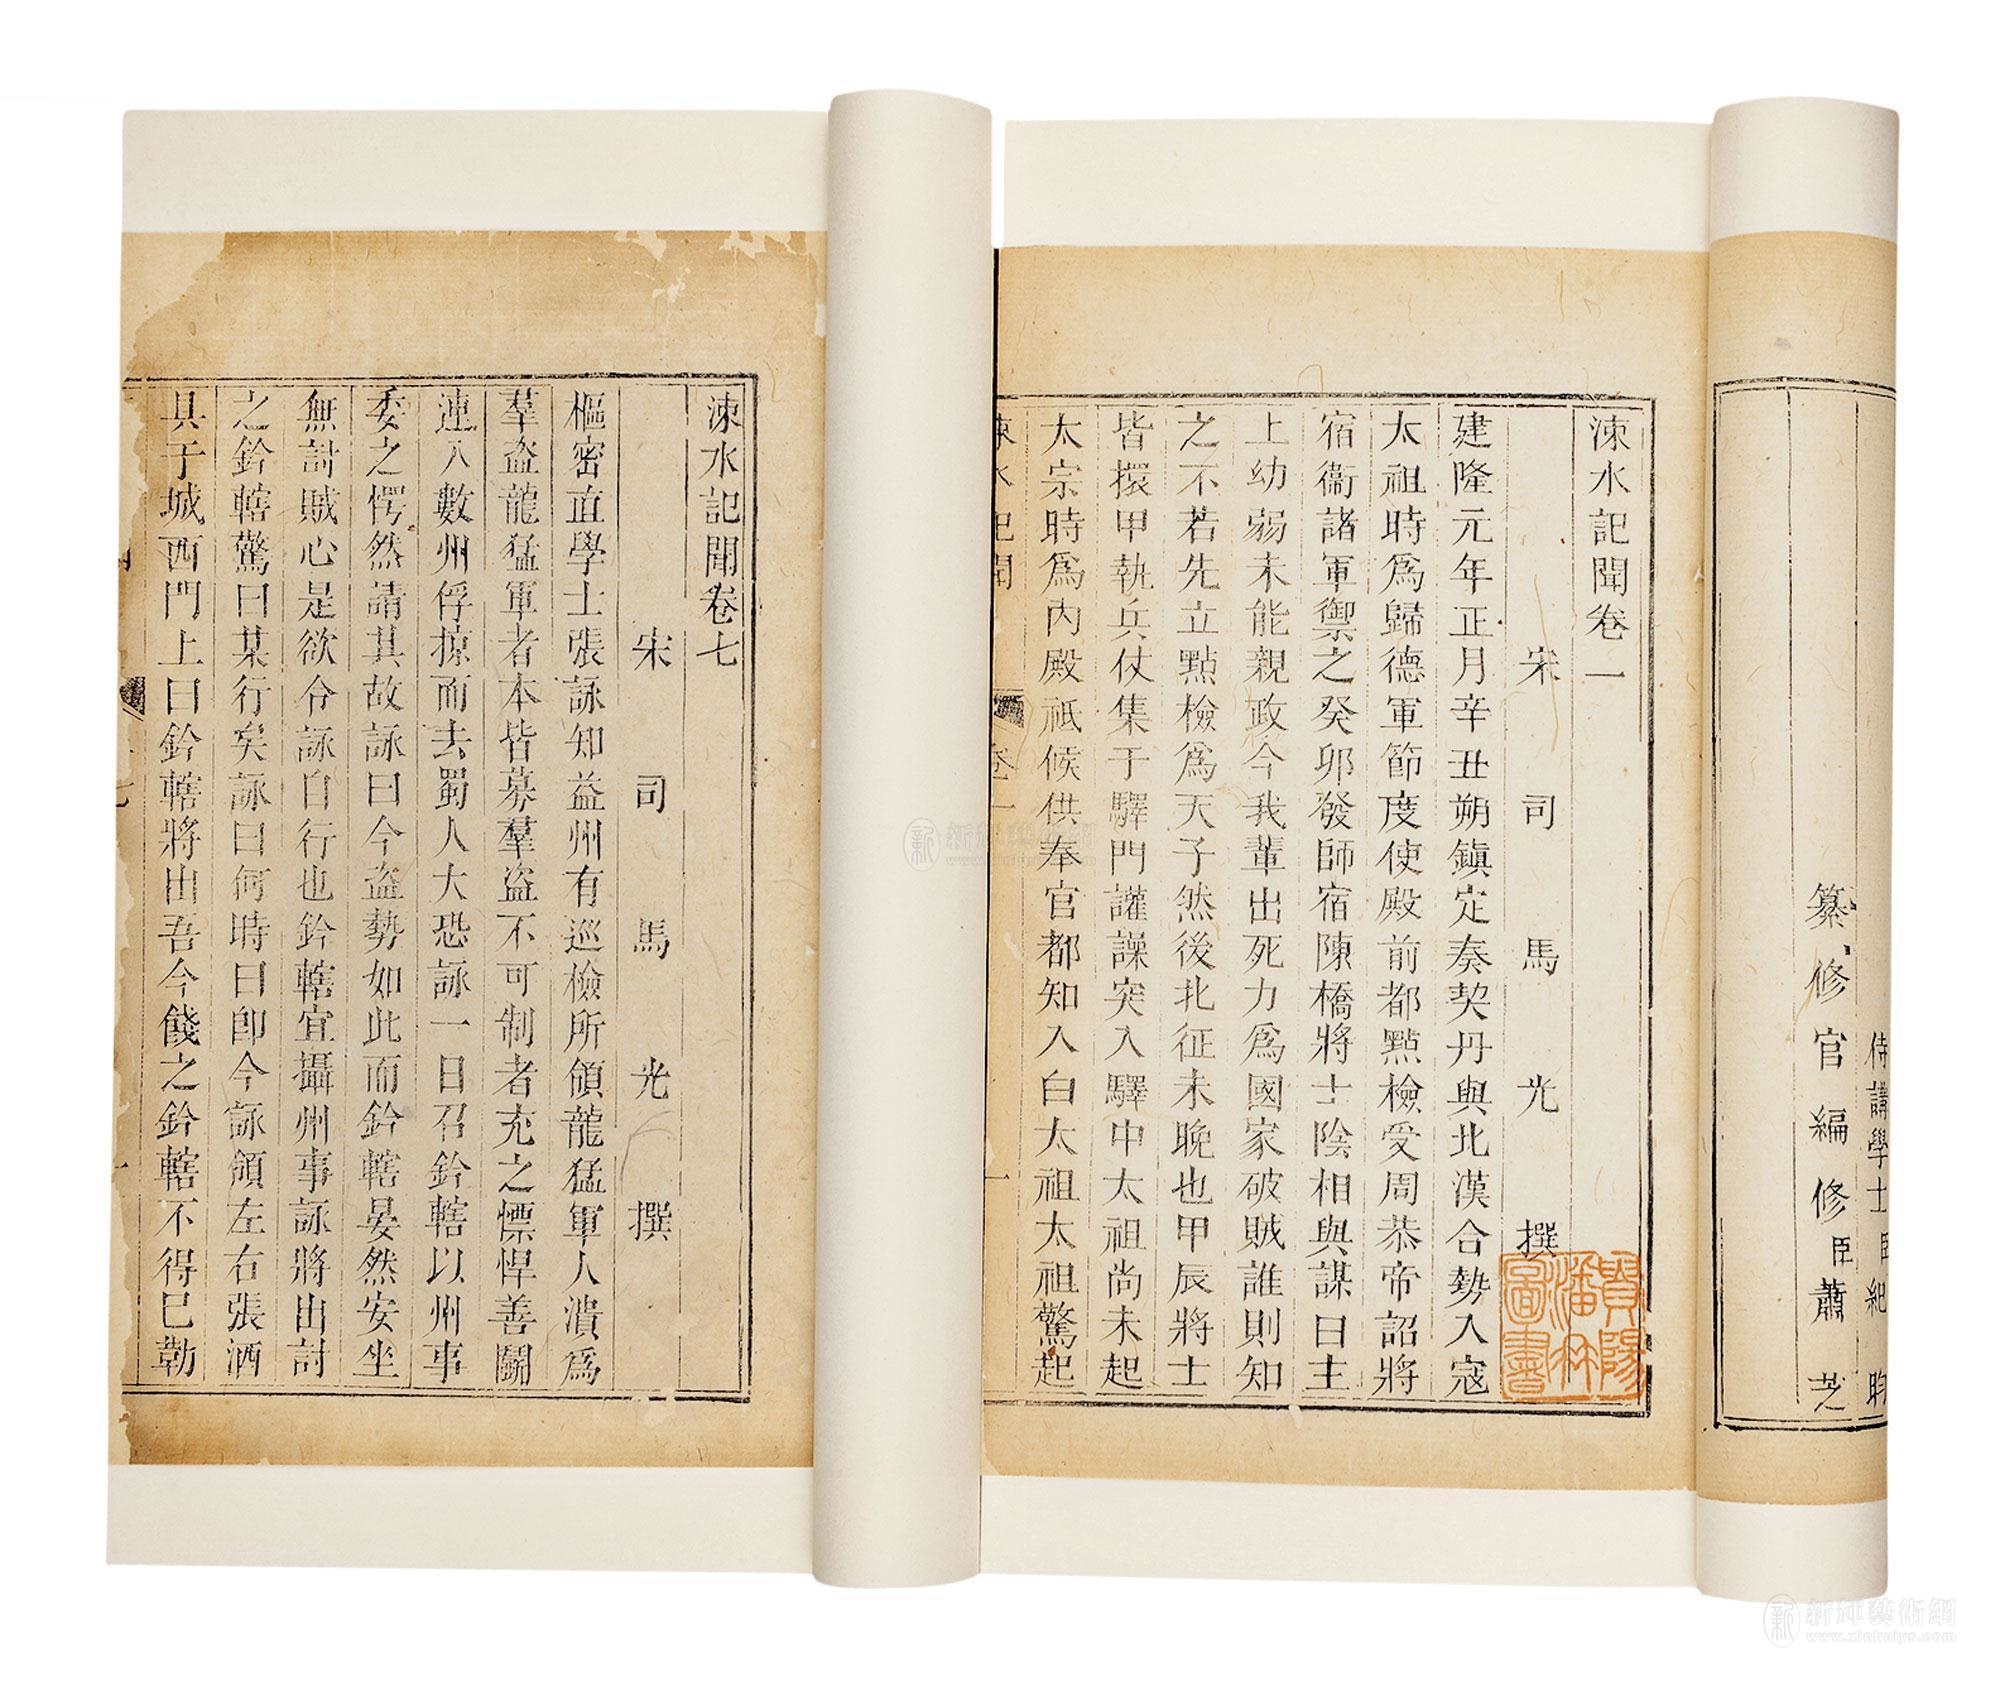 侍講學士臣紀昀
纂修官編修臣蕭芝
涑水記聞卷一
宋司馬光撰
建隆元年正月辛丑朔鎮定奏契丹與北漢合勢入寇
太祖時爲歸德軍節度使殿前都點檢受周恭帝詔將
宿衞諸軍禦之癸卯發師宿陳橋將士陰相與謀曰主
上幼弱未能親政今我輩出死力爲國家破賊誰則知
之不若先立點檢爲天子然後北征未晚也甲辰將士
皆擐甲執兵仗集于驛門讙譟突入驛中太祖尚未起
太宗時爲内殿祗候供奉官都知入白太祖太祖驚起
涑水記聞 卷一 一
貴陽潘氏圖書
涑水記聞卷七
宋司馬光撰
樞密直學士張詠知益州有巡檢所領龍猛軍人潰爲
羣盗龍猛軍者本皆募羣盗不可制者充之慓悍善鬬
連入數州俘掠而去蜀人大恐詠一日召鈐轄以州事
委之愕然請其故詠曰今盗勢如此而鈐轄晏然安坐
無討賊心是欲令詠自行也鈐轄宜攝州事詠將出討
之鈐轄驚曰某行矣詠曰何時曰卽今詠領左右張酒
具于城西門上曰鈐轄將出吾今餞之鈐轄不得已勒
新
新輝藝術網
www.xinhuiys.com
新
新輝藝術網
www.xinhuiys.com